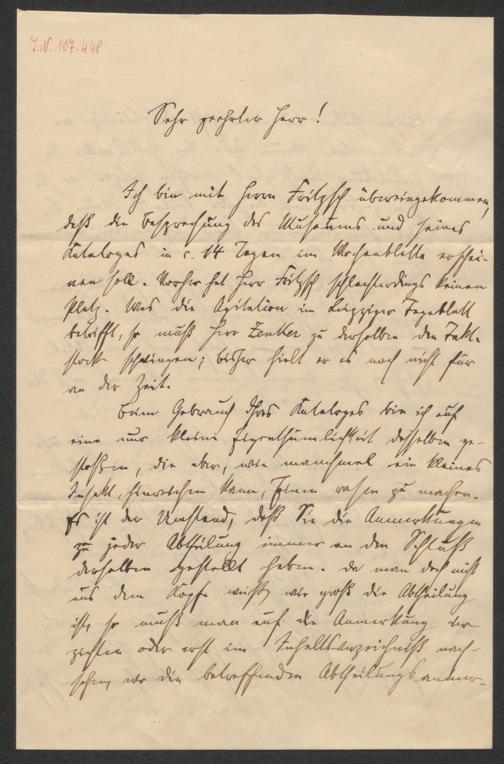 J.N. 107.448
Sehr geehrter Herr!
Ich bin mit Herrn Fritzsch übereingekommen,
daß die Besprechung des Museums und seines
Kataloges in c. 14 Tagen im Wochenblatte erschei-
nen soll. Vorher hat Herr Fritzsch schlechterdings keinen
Platz. Was die Agitation im Leipziger Tageblatt
betrifft, so muß Herr Zenker zu derselben den Takt-
stock schwingen; bisher hielt er es noch nicht für
an der Zeit.
Beim Gebrauch Ihres Kataloges bin ich auf
eine nur kleine Eigenthümlichkeit desselben ge-
stoßen, die aber, wie manchmal ein kleines
Insekt, hinreichen kann, Einen rasen zu machen.
Es ist der Umstand, daß Sie die Anmerkungen
zu jeder Abtheilung immer an den Schluß
derselben gestellt haben. Da man doch nicht
aus dem Kopfe weiß, wie groß die Abtheilung
ist, so muß man auf die Anmerkung ver-
zichten oder erst im Inhaltsverzeichniß nach-
sehen, wo die betreffenden Abtheilungsanmer-